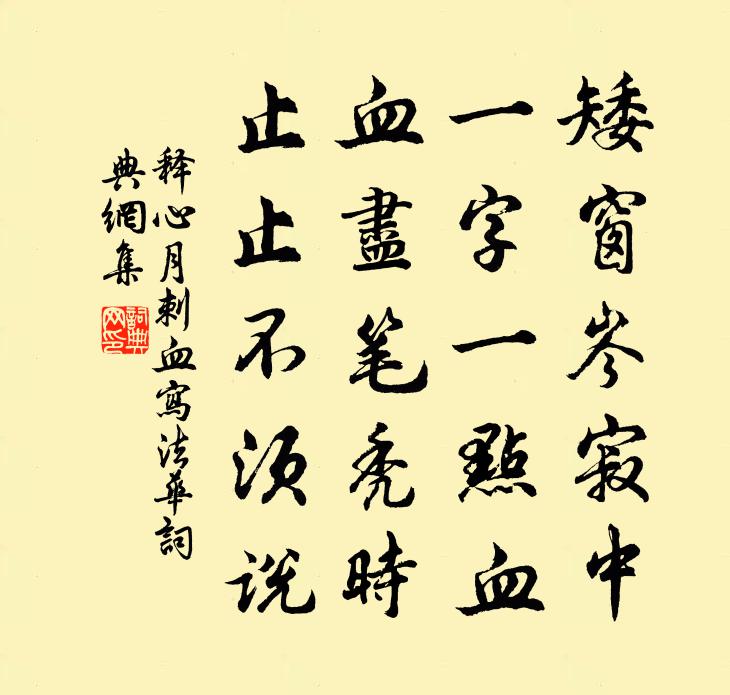 矮窗岑寂中
一字一點血
血盡笔秃時
止止不須説
释心月刺血寫法華詞
典網集
詞典
网印